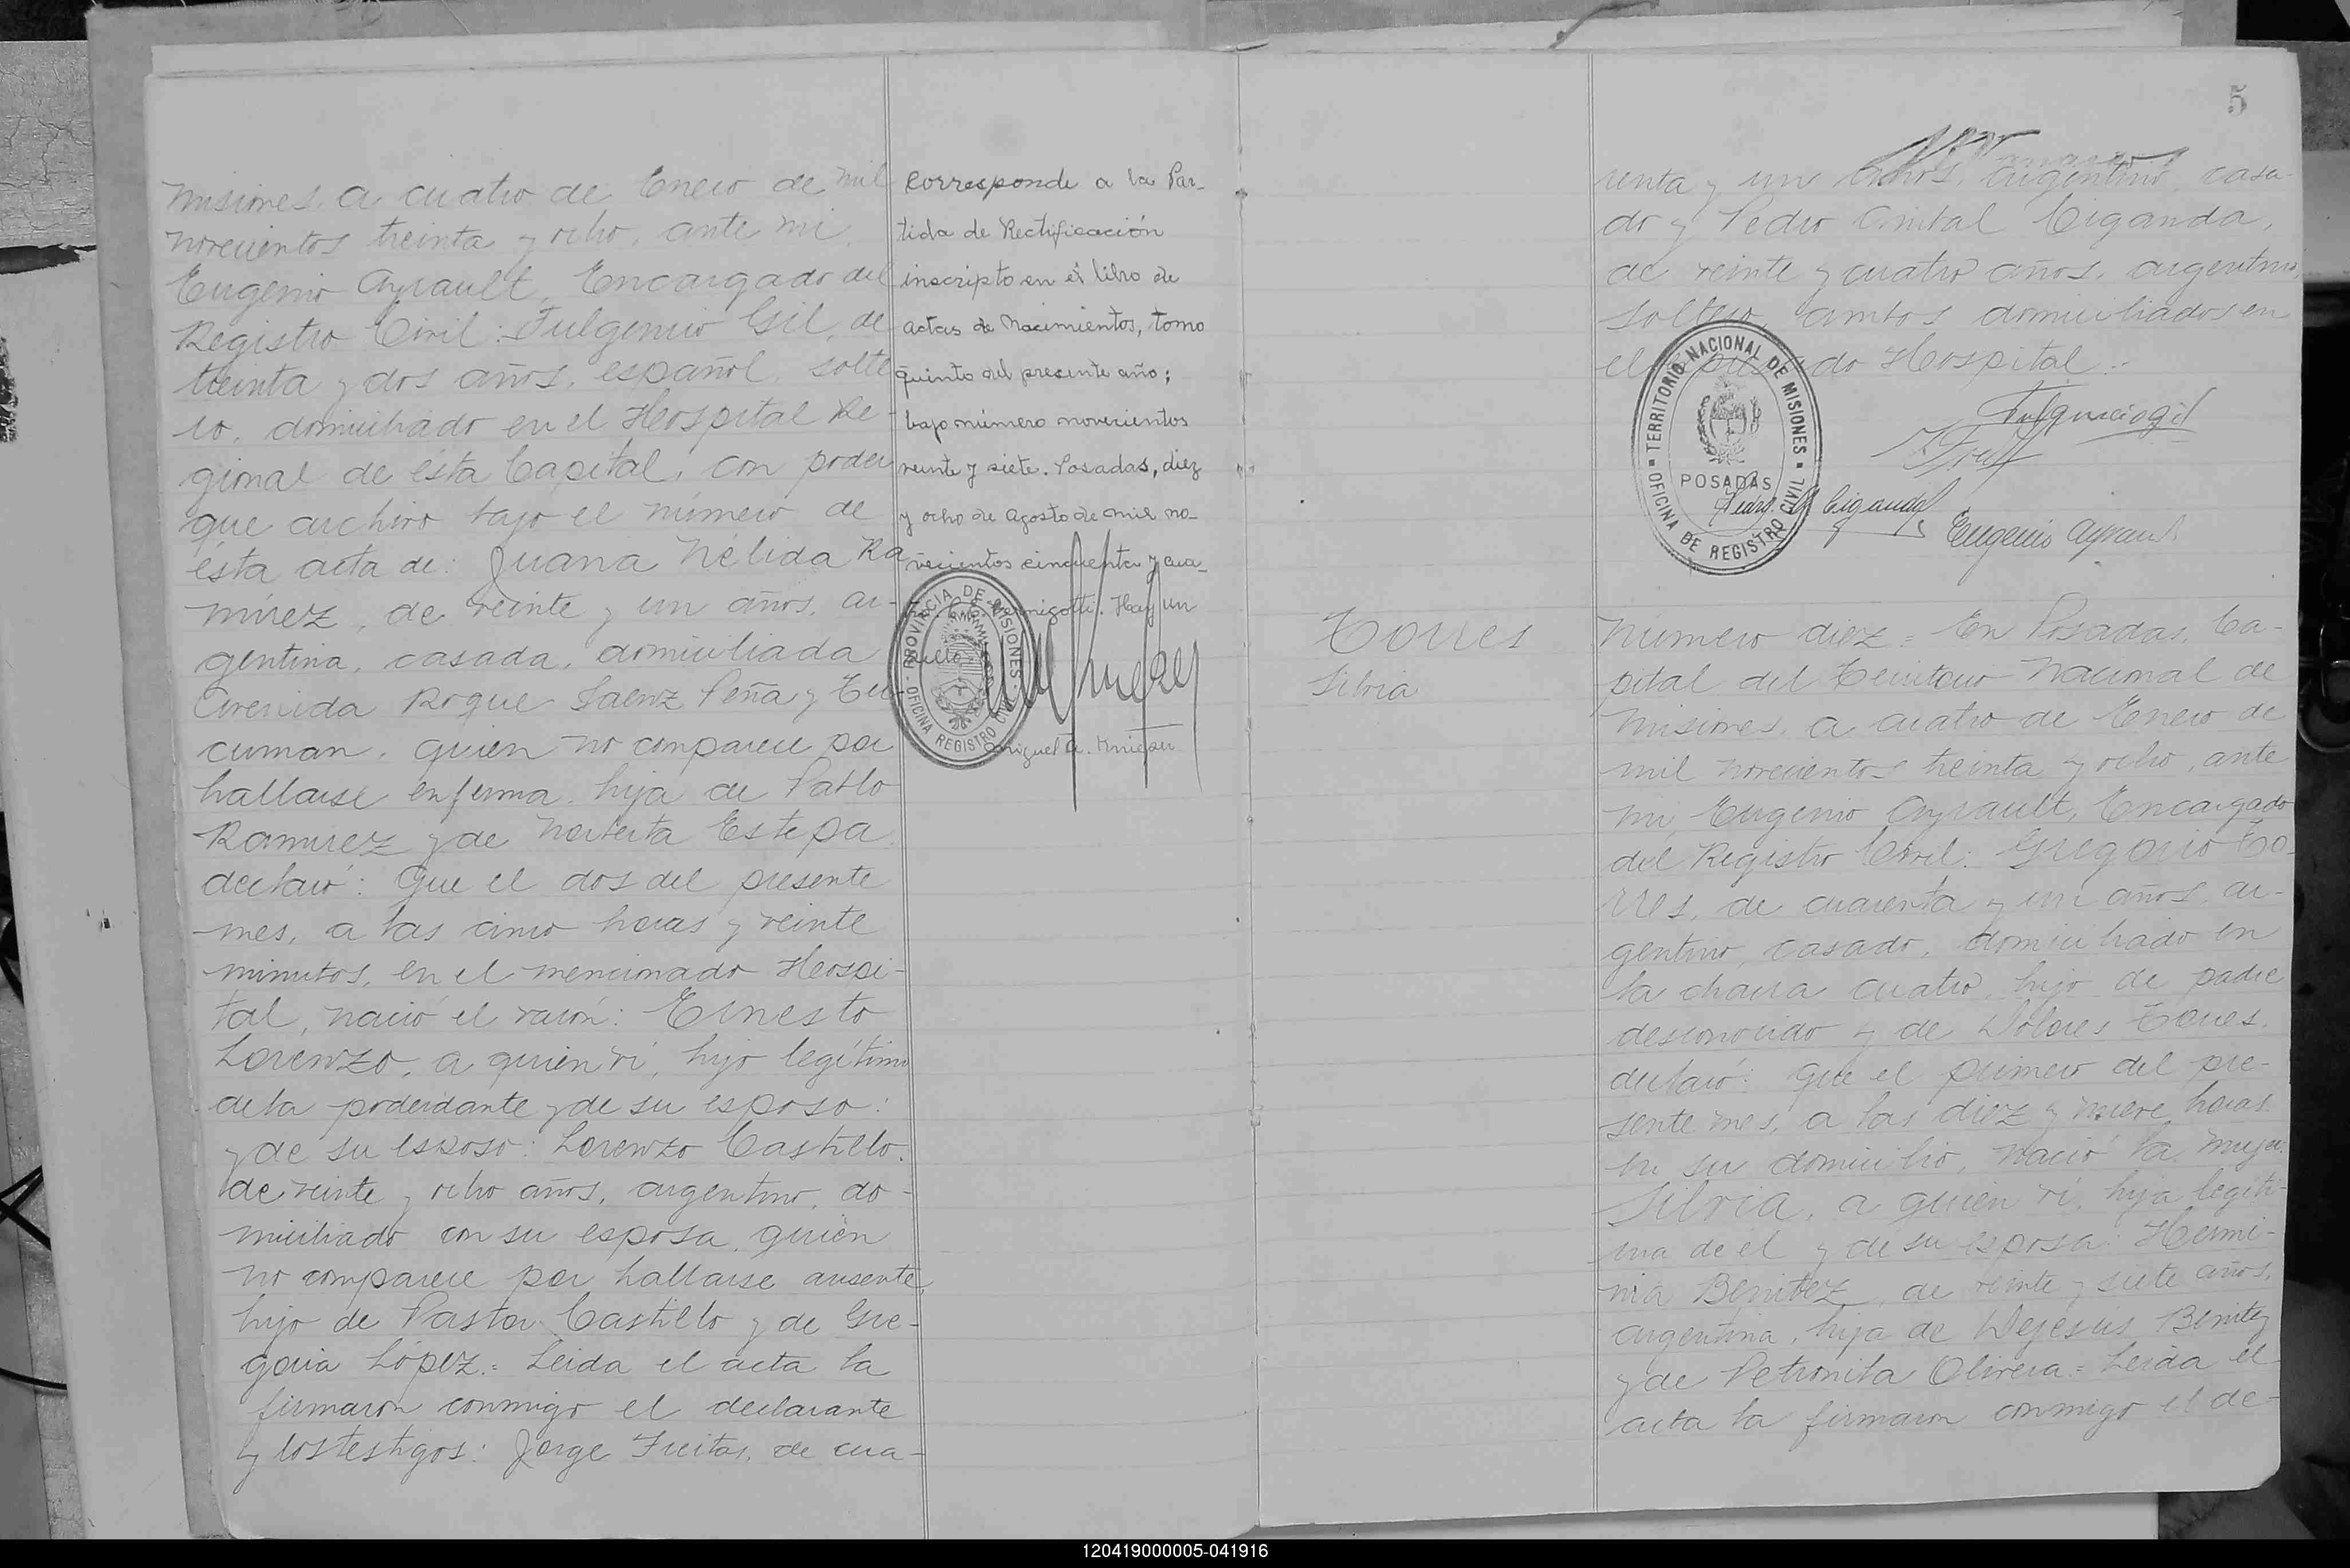 Misiones, a cuatro de Enero de mil
novecientos treinta y ocho, ante mi,
Eugenio Ayrault, Encargado del
Registro Civil: Fulgencio Gil, de
treinta y dos años, español, solte
ro, domiciliado en el Hospital Re-
gional de ésta Capital, con poder
que archivo bajo el número de
ésta acta de: Juana Nélida Ra
mirez, de veinte y un años, ar-
gentina, casada, domiciliada
Avenida Roque Saenz Peña y Tu-
cuman, quien no comparece por
hallarse enferma, hija de Pablo
Ramirez y de Norberta Estepa
declaró: Que el dos del presente
mes, a las cinco horas y veinte
minutos, en el mencionado Hospi-
tal, nació el varón: Ernesto
Lorenzo, a quien ví, hijo legítimo
de la poderdante y de su esposo:
y de su esposo: Lorenzo Castillo,
de veinte y ocho años, argentino, do-
miciliado con su esposa, quien
no comparece por hallarse ausente,
hijo de Pastor Castillo y de Gre-
goria López.= Leida el acta la
firmaron conmigo el declarante
y los testigos: Jorge Freitas, de cua-
Corresponde a la Par-
tida de Rectificación
inscripto en el libro de
actas de Nacimientos, tomo
quinto del presente año;
bajo número novecientos
veinte y siete. Posadas, diez
y ocho de Agosto de mil no-
vecientos cincuenta y cua-
Hay un
sello
PROVINCIA DE MISIONES
OFICINA REGISTRO CIVIL
Miguel A.
5
renta y un años, argentino, casa-
do y Pedro Anibal Ciganda,
de veinte y cuatro años, argentino,
soltero, ambos domiciliados en
el do Hospital.-
TERRITORIO NACIONAL DE MISIONES
POSADAS
OFICINA DE REGISTRO CIVIL
Fulgencio Gil
Pedro A Ciganda
Eugenio Ayrault
Torres
Silvia
Número diez = En Posadas, Ca-
pital del Territorio Nacional de
Misiones, a cuatro de Enero de
mil novecientos treinta y ocho, ante
mi Eugenio Ayrault, Encargado
del Registro Civil: Gregorio To-
rres, de cuarenta y un años, ar-
gentino, casado, domiciliado en
la chacra cuatro, hijo de padre
desconocido y de Dolores Torres,
declaró: Que el primero del pre-
sente mes, a las diez y nueve horas
en su domicilio, nació la mujer
Silvia, a quien ví, hija legíti-
ma de el y de su esposa: Hermi-
nia Benitez, de veinte y siete años,
argentina, hija de Dejesús Benitez
y de Petronila Olivera = Leida el
acta la firmaron conmigo el de-
120419000005-041916